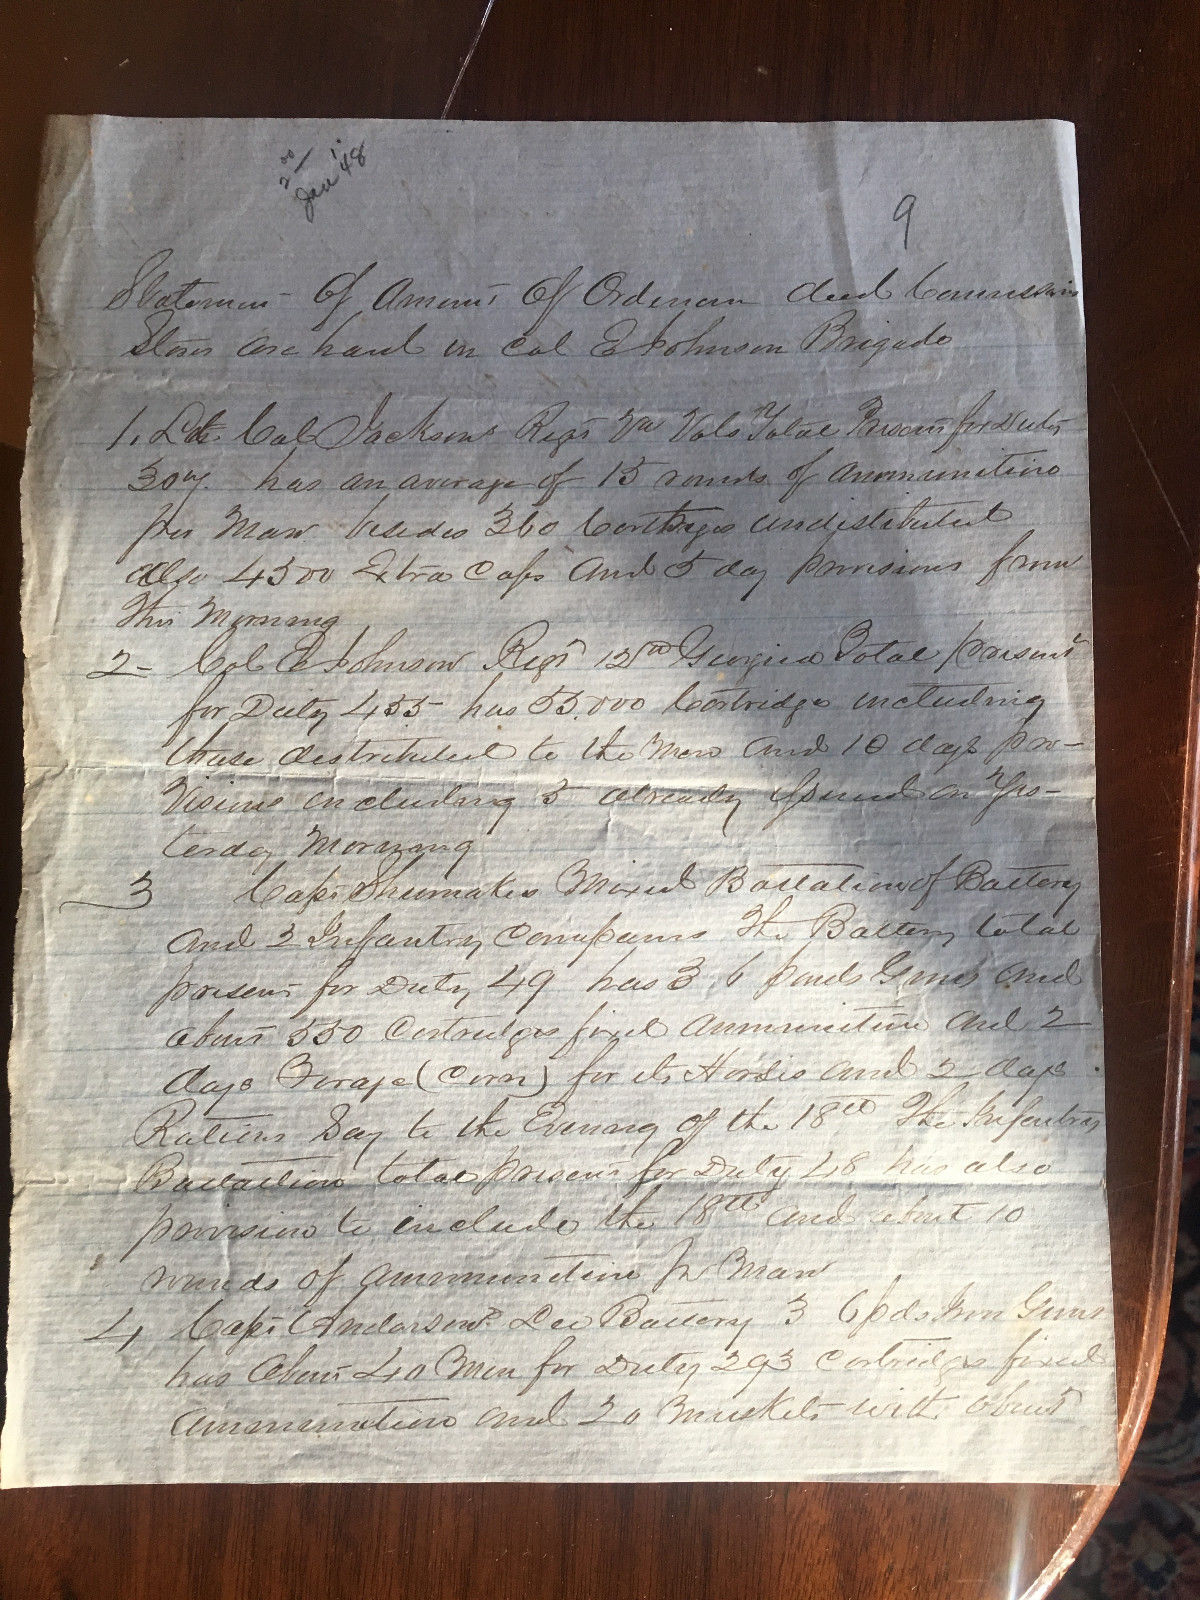 2 00
Jan 1. '48
9
Statement Of Amount Of Ordinan and Commissari
Stores on hand in Col E Johnson Brigade
1. Lt Col Jacksons Regt Va Vols Total Present for Duty
30 has an average of 15 rounds of ammunition
per Man besides 360 Cartrges undistributed
Also 4500 Extra Caps and 5 day provisions from
this Morning
2 - Col E Johnson Regt 12th Georgia Total present
for Duty 435 has 55.000 Cartridge including
those destributed to the Men and 10 days pro-
visions including 5 already issued on Yes-
terday Morning
3 Capt Shumakes Mixed Battalion of Battery
and 2 Infantry Companies The Battery total
present for Duty 49 has 3, 6 pouds Guns and
about 550 Cartridges fixed ammunition and 2
days Forage (corn) for its Horses and 2 days
Rations Say to the Evening of the 18th The Infantry
Battalion total present for Duty 48 has also
provision to include the 18th and about 10
rounds of ammunition pr Man
4 Capt Andersons Lee Battery 3 6 pds Iron Guns
has about 40 Men for Duty 293 Cartridges fixed
ammunition and 20 Muskets with about